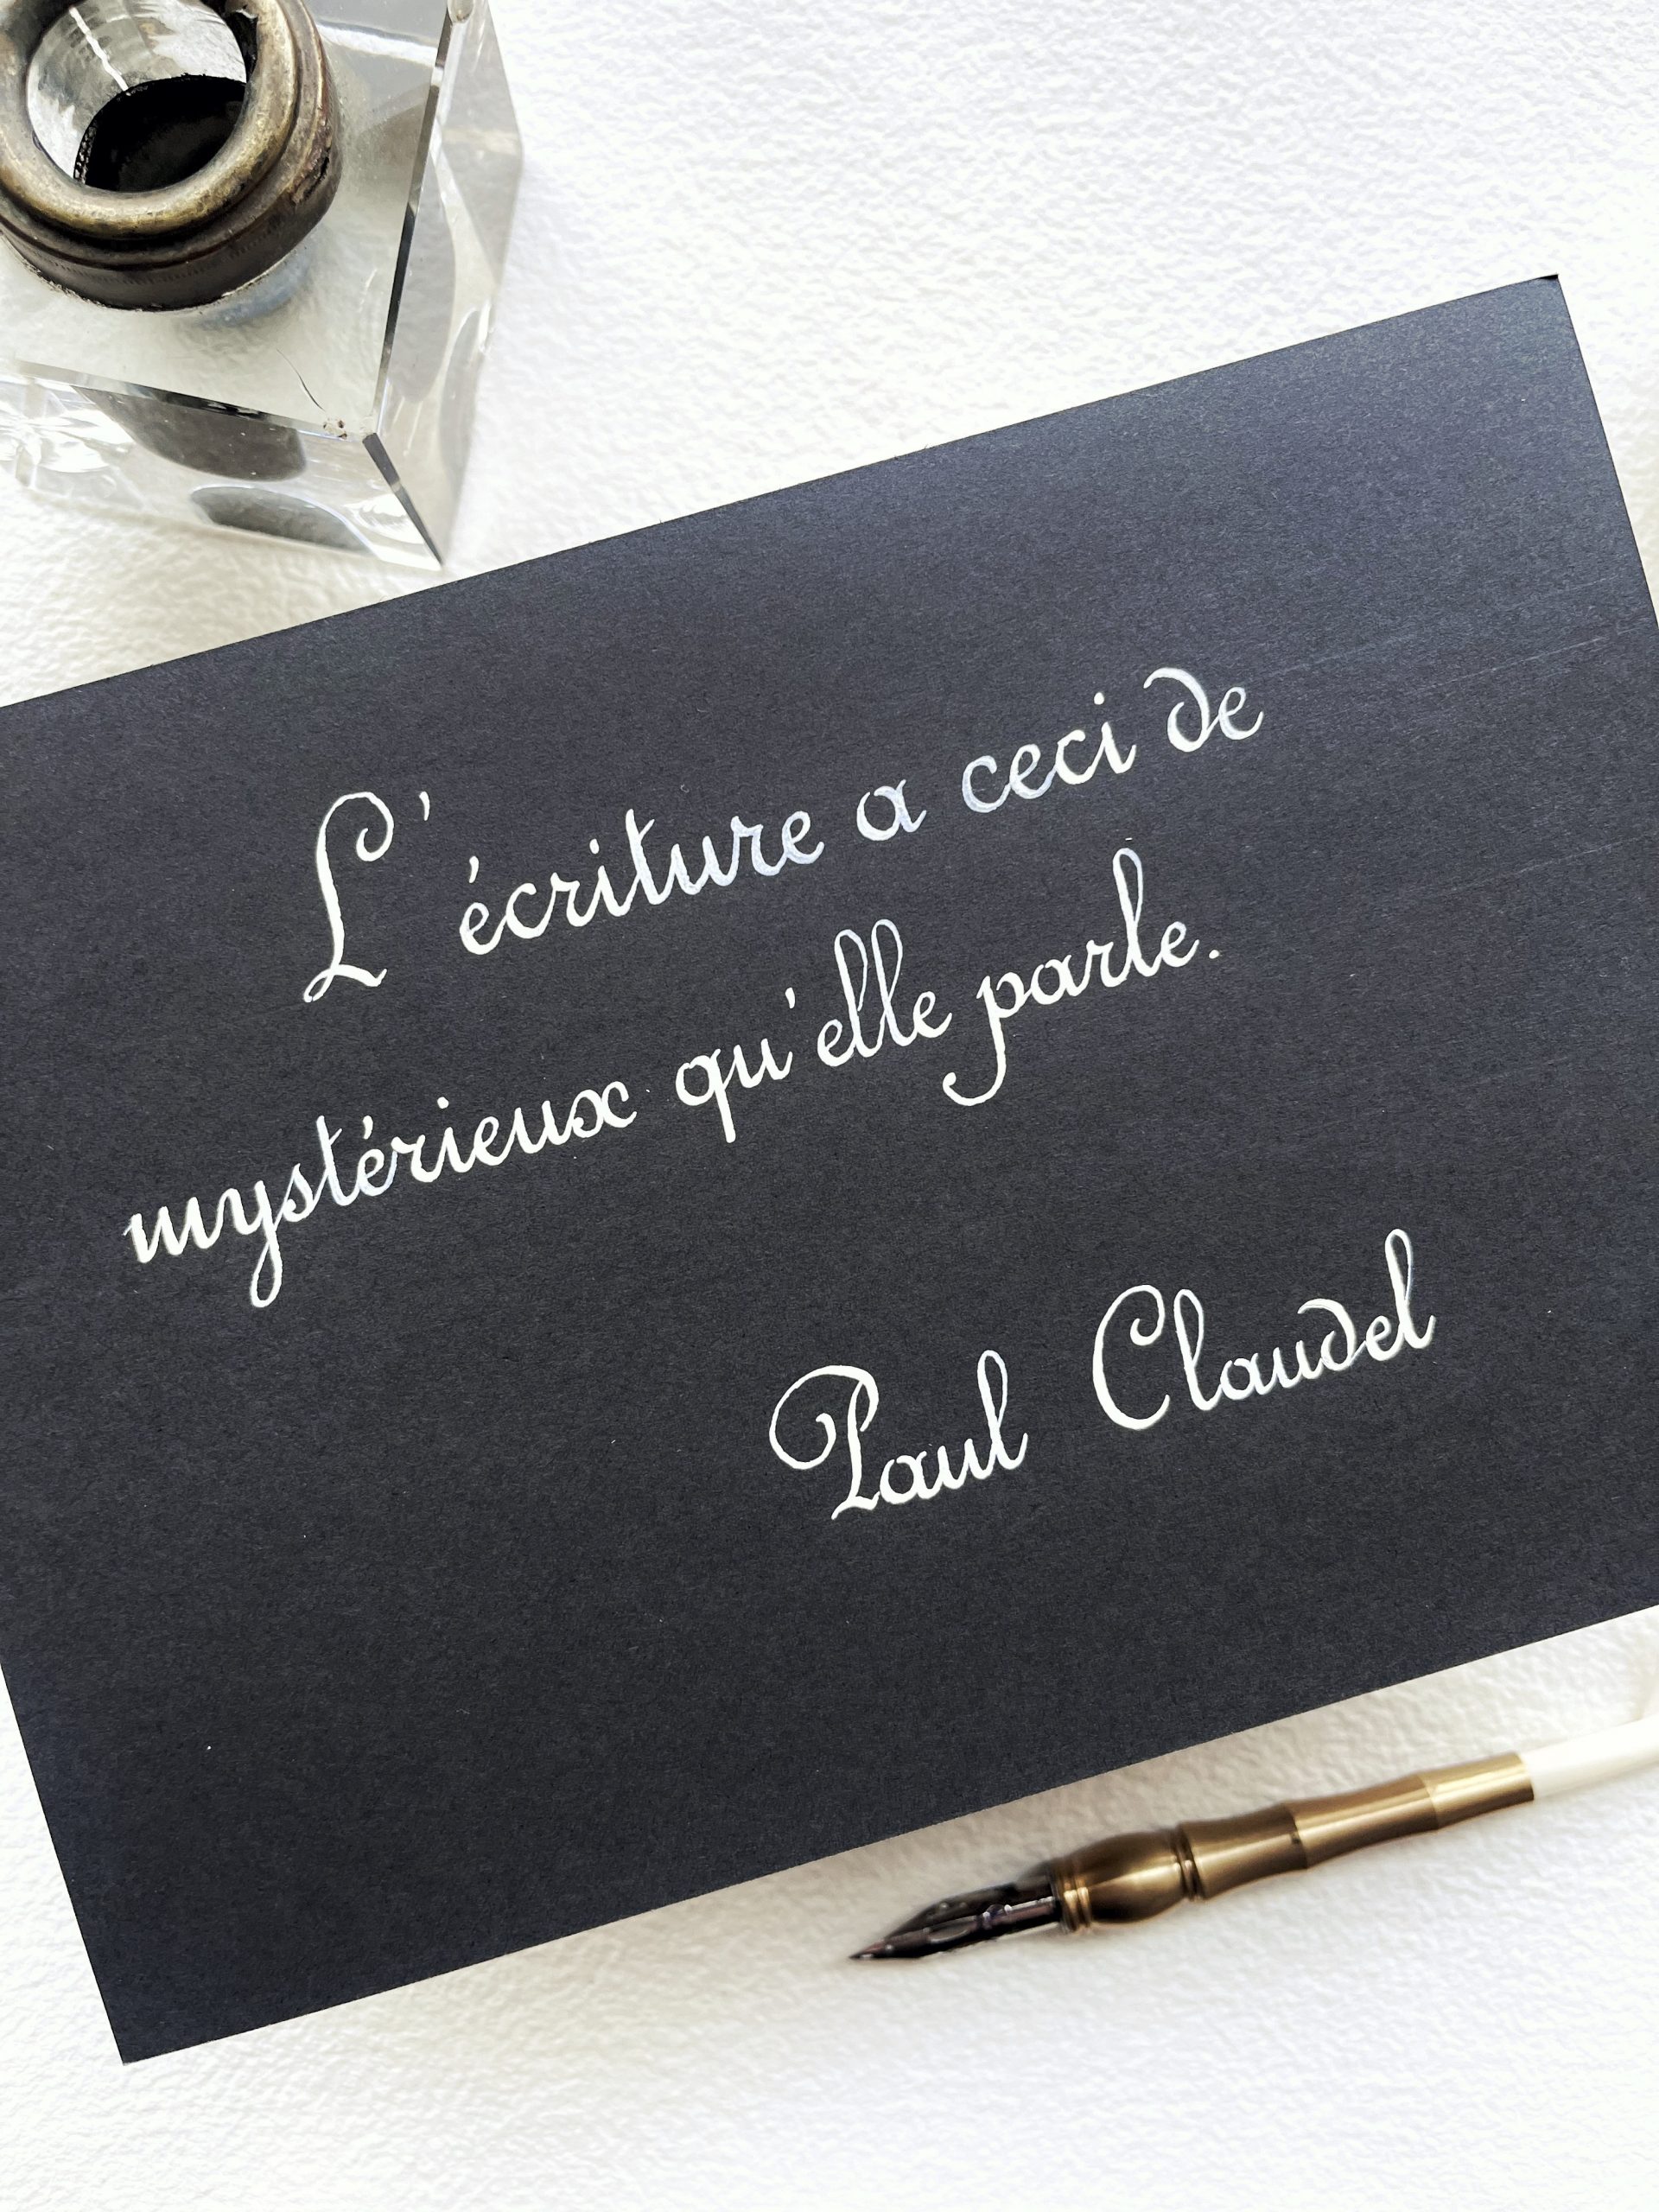 L'écriture a ceci de
mystérieux qu'elle parle.
Paul Claudel